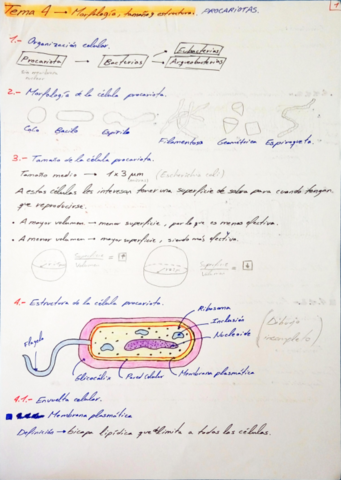 Tema 4 → Morfología, tamaño y estructura: PROCARIOTAS.
1
1.- Organización celular.
Procariota → Bacterias → Eubacterias
Arqueobacterias
2.- Morfología de la célula procariota.
Coco Bacilo Espirilo Filamentosa Geométrica Espiroqueta
3.- Tamaño de la célula procariota.
Tamaño medio → 1 x 3 µm (Escherichia coli)
A estas células les interesa tener una superficie de sobra para cuando tengan
que reproducirse.
• A mayor volumen → menor superficie, por lo que es menos efectiva.
• A menor volumen → mayor superficie, siendo más efectiva.
Superficie
Volumen
Superficie
Volumen
4.- Estructura de la célula procariota.
Ribosoma
Inclusión
Nucleoide
(Dibujo
incompleto)
Flagelo
Glicocálix Pared celular Membrana plasmática
4.1.- Envuelta celular.
Membrana plasmática
Definición → bicapa lipídica que limita a todas las células.